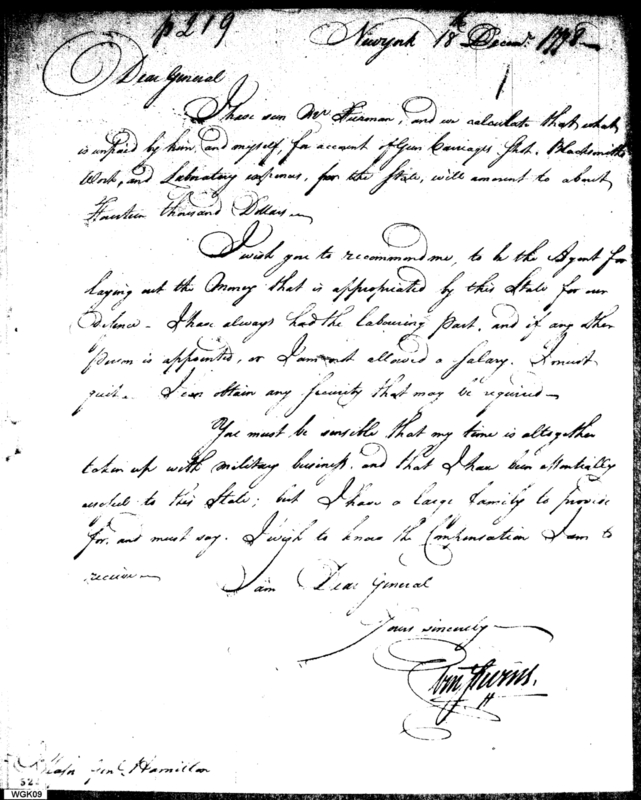 p 219
New york 18th Decem. 1798
Dear General
I have seen Mr Freeman, and we calculate that what
is unpaid by him, and myself, for account of Gun Carriages, Shot, Blacksmiths
Work, and Laboratory expences, for the State, will amount to about
Fourteen thousand Dollars
I wish you to recommend me, to be the Agent for
laying out the Money that is appropriated by this State for our
defence - I have always had the labouring part, and if any other
person is appointed, or I am not allowed a Salary. I must
quit. I can obtain any Security that may be required
You must be sensible that my time is altogether
taken up with military business, and that I have been essentially
useful to this State; but I have a large family to provide
for, and must say. I wish to know the Compensation I am to
receive
I am Dear General
Yours sincerely
Eben Stevens.
Major Genl. Hamilton
52
WGK09